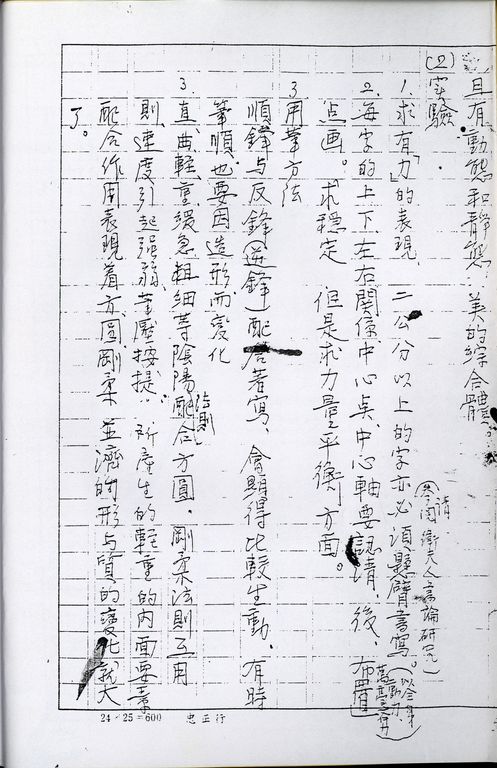 且有動態和靜態‥美的綜合體。
(2)實驗
請参閱衛夫人書論研究
1. 求有「力」的表現 二公分以上的字亦必須懸臂書寫。
2. 每字的上下左右関係、中心矣、中心軸要認清後、布置
点画。求穩定 但是求力量平衡方面。
3 用筆方法
順鋒与反鋒(逆鋒)配合著寫、會顯得比較生動、有時
筆順也要因造形而變化
3 直、曲、輕、重、緩、急、粗、細等陰陽配合法則方圓、剛柔法則互用
則、速度引起强弱、筆壓按提‥所產生的輕重的内面要素
配合作用表現着方圓剛柔 並濟的形与質的變化就大
了。
24×25=600 忠正行